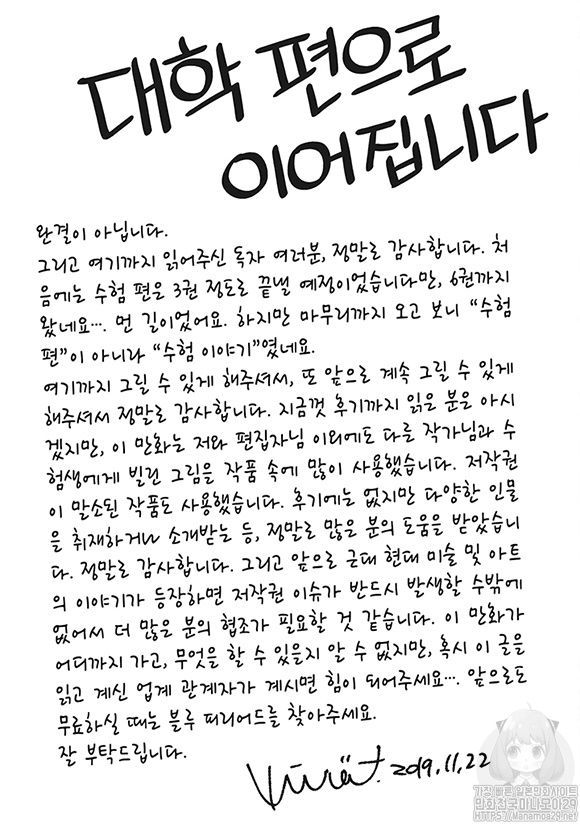 대학 편으로
이어집니다
완결이 아닙니다.
그리고 여기까지 읽어주신 독자 여러분, 정말로 감사합니다. 처
음에는 수험 편은 3권 정도로 끝낼 예정이었습니다만, 6권까지
왔네요…. 먼 길이었어요. 하지만 마무리까지 오고 보니 “수험
편”이 아니라 “수험 이야기”였네요.
여기까지 그릴 수 있게 해주셔서, 또 앞으로 계속 그릴 수 있게
해주셔서 정말로 감사합니다. 지금껏 후기까지 읽은 분은 아시
겠지만, 이 만화는 저와 편집자님 이외에도 다른 작가님과 수
험생에게 빌린 그림을 작품 속에 많이 사용했습니다. 저작권
이 말소된 작품도 사용했습니다. 후기에는 없지만 다양한 인물
을 취재하거나 소개받는 등, 정말로 많은 분의 도움을 받았습니
다. 정말로 감사합니다. 그리고 앞으로 근대 현대 미술 및 아트
의 이야기가 등장하면 저작권 이슈가 반드시 발생할 수밖에
없어서 더 많은 분의 협조가 필요할 것 같습니다. 이 만화가
어디까지 가고, 무엇을 할 수 있을지 알 수 없지만, 혹시 이 글을
읽고 계신 업계 관계자가 계시면 힘이 되어주세요…. 앞으로도
무료하실 때는 블루 피리어드를 찾아주세요.
잘 부탁드립니다.
2019.11.22
가장 빠른 일본만화사이트
만화천국 마나모아29
HTTPS://Manamoa29.net